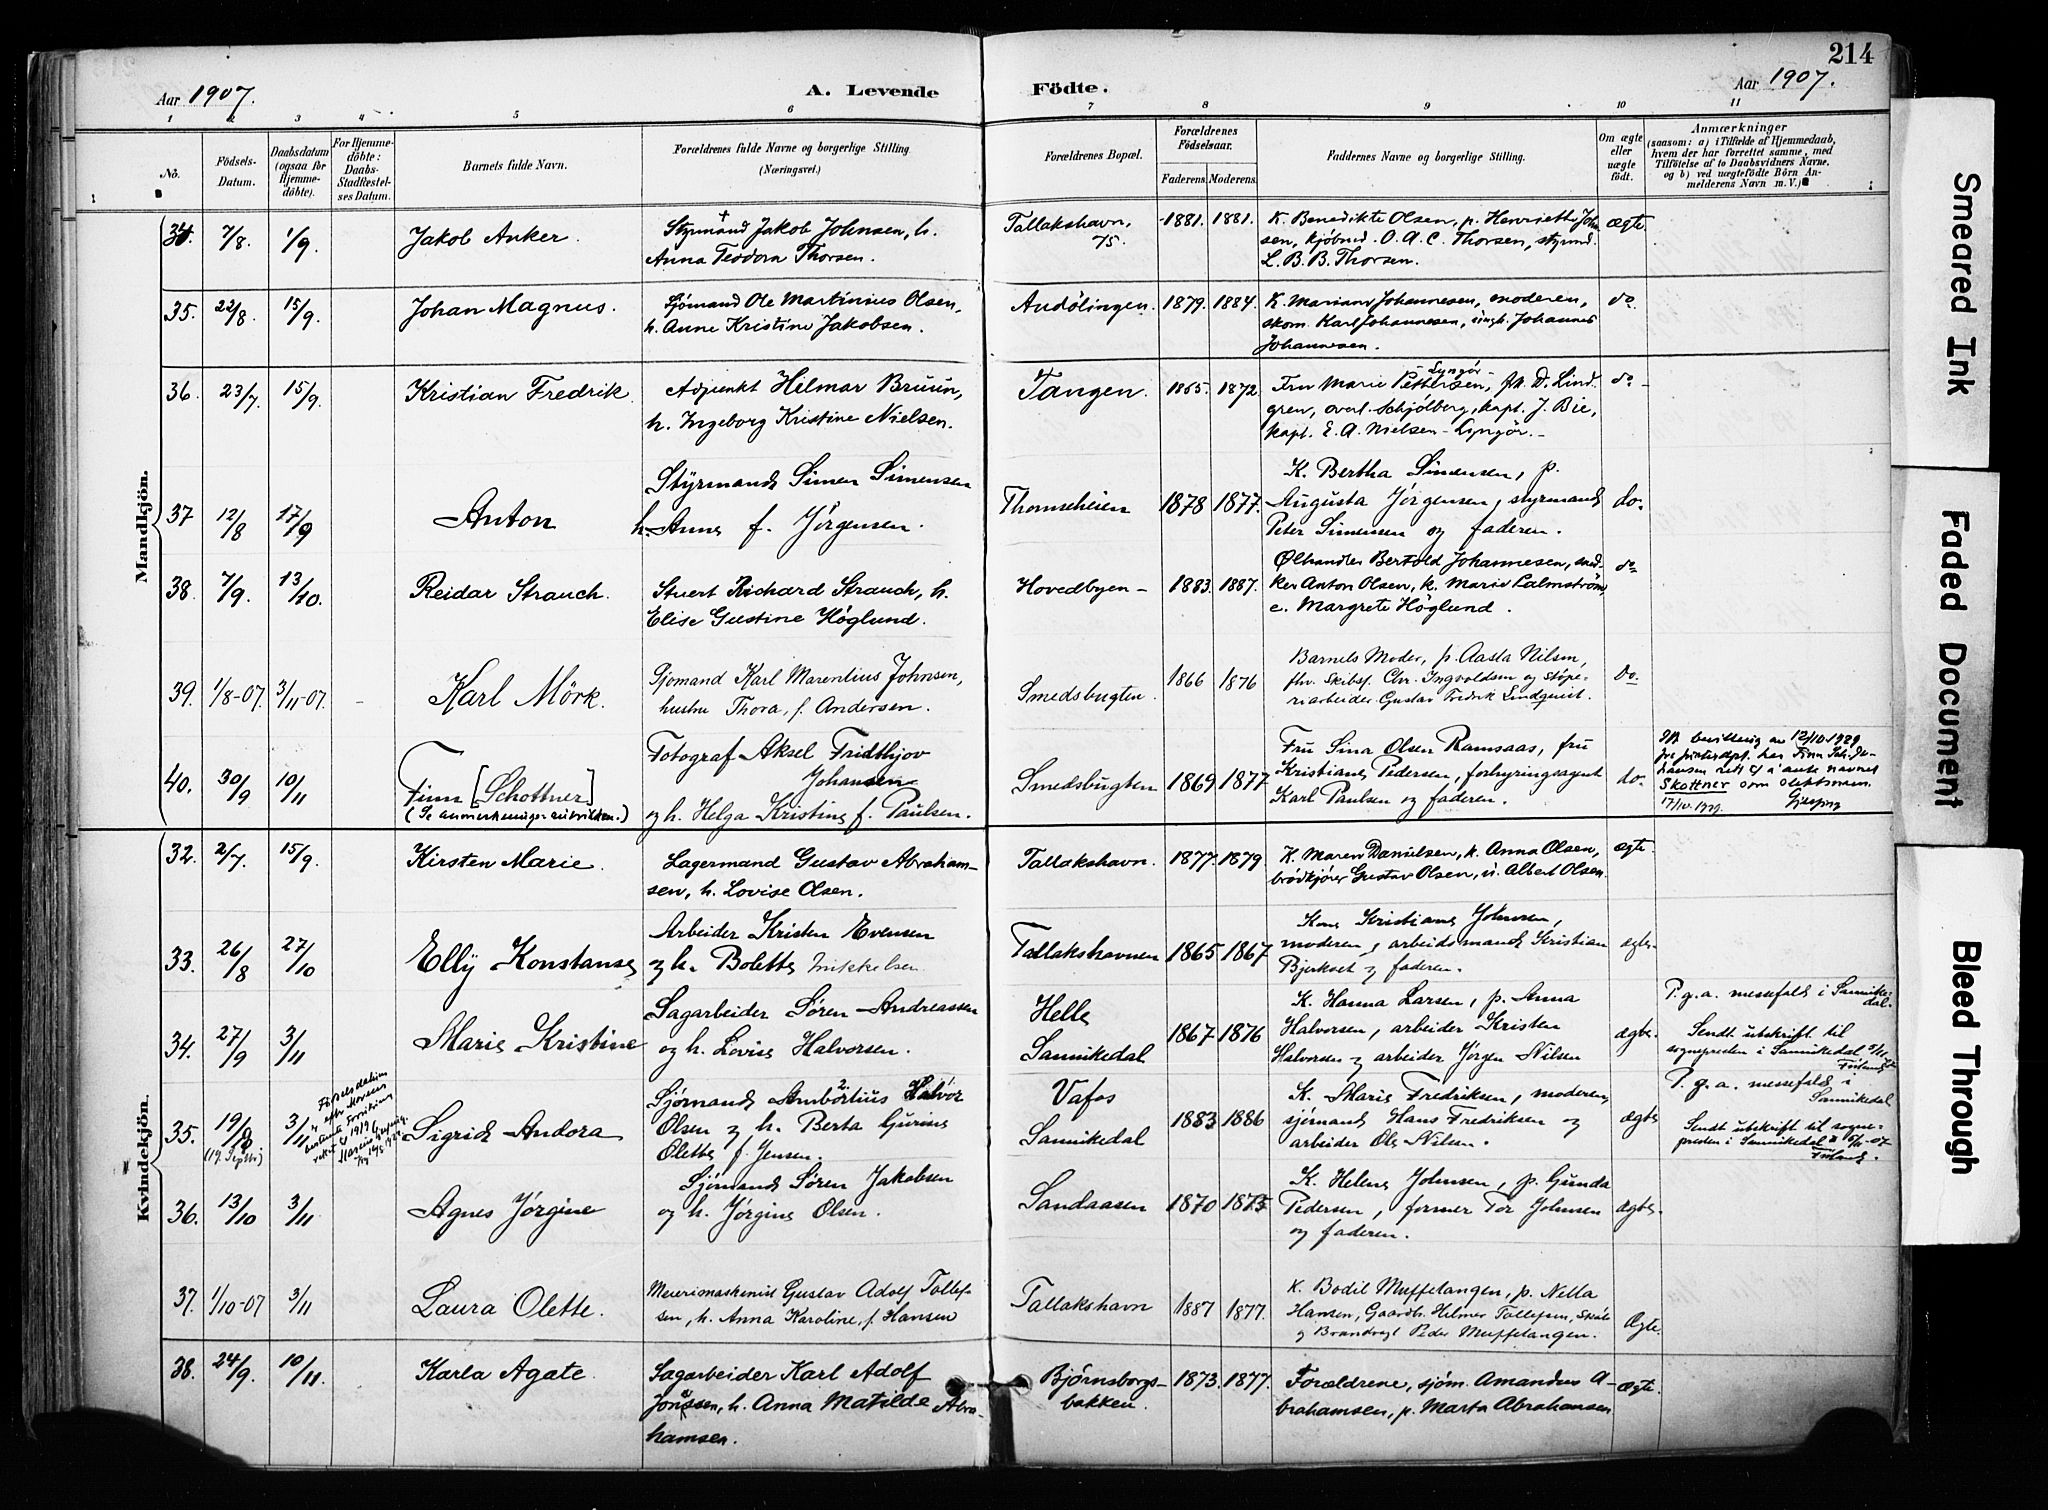 214
Aar 1907.
A. Levende
Födte.
Aar 1907.
1 2 3 4 5 6 7 8 9 10 11
No.
Födsels-Datum.
Daabsdatum (ogsaa for Hjemme-döbte).
For Hjemme-döbte: Daabs-Stadfæstel-ses Datum.
Barnets fulde Navn.
Forældrenes fulde Navne og borgerlige Stilling
(Næringsvei.)
Forældrenes Bopæl.
Forældrenes Födselsaar.
Faderens. Moderens.
Faddernes Navne og borgerlige Stilling.
Om ægte eller uægte födt.
Anmærkninger
(saasom: a) i Tilfælde af Hjemmedaab,
hvem der har forrettet samme, med
Tilföielse af to Daabsvidners Navne,
og b) ved uægtefödte Börn An-
melderens Navn m. V.)
Mandkjön.
34. 7/8. 1/9. Jakob Anker.
Styrmand Jakob Johnsen, h.
Anna Teodora Thorsen.
Tallakshavn, 75. 1881. 1881.
K. Benedikte Olsen, p. Henriette John-
sen, kjøbmd. O. A. C. Thorsen, styrmd.
L. B. B. Thorsen.
ægte
35. 22/8. 15/9. Johan Magnus.
Sjömand Ole Martinius Olsen,
h. Anne Kristine Jakobsen.
Andölingen. 1879. 1884.
K. Mariane Johannesen, moderen,
skom. Karl Johannesen, ungk. Johannes
Johannesen.
do
36. 23/7. 15/9. Kristian Fredrik.
Adjunkt Hilmar Bruun,
h. Ingeborg Kristine Nielsen.
Tangen. 1865. 1872.
- Lyngör -
Fru Marie Pettersen, fr. D. Lind-
gren, overl. Schjölberg, kapt. J. Bie,
kapt. E. A. Nielsen - Lyngör. -
do -
37 12/8 17/9 Anton
Styrmand Simen Simensen
h. Anne f. Jørgensen.
Thomesheien 1878 1877.
K. Bertha Simensen, p.
Augusta Jørgensen, styrmand
Peter Simensen og faderen.
do.
38. 7/9. 13/10. Reidar Strauch.
Stuert Richard Strauch, h.
Elise Gustine Höglund.
Hovedbyen - 1883. 1887.
Ølhandler Bertold Johannesen, sned-
ker Anton Olsen, k. Marie Palmström,
e. Margrete Höglund.
do
39. 1/8-07. 3/11-07. - Karl Mörk.
Sjømand Karl Marentius Johnsen,
hustru Thora, f. Andersen.
Smedsbugten 1866 1876
Barnets Moder, p. Aasta Nilsen,
fhv. Skibsf. Chr. Ingvoldsen og støpe-
riarbeider Gustav Fredrik Lindquist.
Do.
40. 30/9 10/11 Finn [Schottner]
(Se anmerkningsrubrikken.)
Fotograf Aksel Fridthjov
Johansen
og h. Helga Kristine f. Paulsen.
Smedsbugten 1869 1877
Fru Sina Olsen Ramsaas, fru
Kristiane Pedersen, forhyringsagent
Karl Paulsen og faderen.
do.
bevilling av 12/10.1929
Skottner som slektsnavn.
17/10.1929.
Kvindekjön.
32. 2/7. 15/9. Kirsten Marie.
Lagermand Gustav Abraham-
sen, h. Lovise Olsen.
Tallakshavn. 1877. 1879.
K. Maren Danielsen, k. Anna Olsen,
brödkjörer Gustav Olsen, u. Albert Olsen.
ægte
33. 26/8 27/10 Elly Konstanse
Arbeider Kristen Evensen
og h. Bolette Mikkelsen
Tallakshavnen 1865 1867
Kone Kristiane Johnsen,
moderen, arbeidsmand Kristian
Bjerkset og faderen.
ægte.
34. 27/9 3/11 Marie Kristine
Sagarbeider Søren Andreassen
og h. Lovise Halvorsen.
Helle
Sannikedal 1867 1876
K. Hanna Larsen, p. Anna
Halvorsen, arbeider Kristen
Halvorsen og arbeider Jørgen Nilsen
ægte.
P. g. a. messefald i Sannike-
dal.
Sendt utskrift til
sognepresten i Sannikedal 5/11
35. 19/8 3/11 Sigrid Andora
(19. Septbr.)
Sjømand Ambortius Halvor
Olsen og h. Berta Gurine
Olette f. Jensen.
Vafos
Sannikedal 1883 1886
K. Marie Fredriksen, moderen,
sjømand Hans Fredriksen og
arbeider Ole Nilsen.
ægte
P. g. a. messefald i
Sannikedal
Sendt utskrift til sogne-
presten i Sannikedal
36. 13/10 3/11 Agnes Jørgine
Sjømand Søren Jakobsen
og h. Jørgine Olsen.
Sandaasen 1870 1875
K. Helene Johnsen, p. Gunda
Pedersen, former Tor Johnsen
og faderen.
ægte.
37. 1/10-07 3/11 Laura Olette.
Meierimaskinist Gustav Adolf Tollef-
sen, h. Anna Karoline, f. Hansen
Tallakshavn 1887 1877.
K. Bodil Muffetangen, p. Nella
Hansen, Gaardbr. Hilmer Tollefsen, Skåtø
og Brandvagt Peder Muffetangen.
Ægte.
38. 24/9. 10/11. Karla Agate.
Sagarbeider Karl Adolf
Jonssen, h. Anna Matilde Abra-
hamsen.
Bjørnsborgs-
bakken. 1873. 1877.
Forældrene, sjøm. Amandus A-
brahamsen, p. Marta Abrahamsen
ægte.
Smeared Ink
Faded Document
Bleed Through